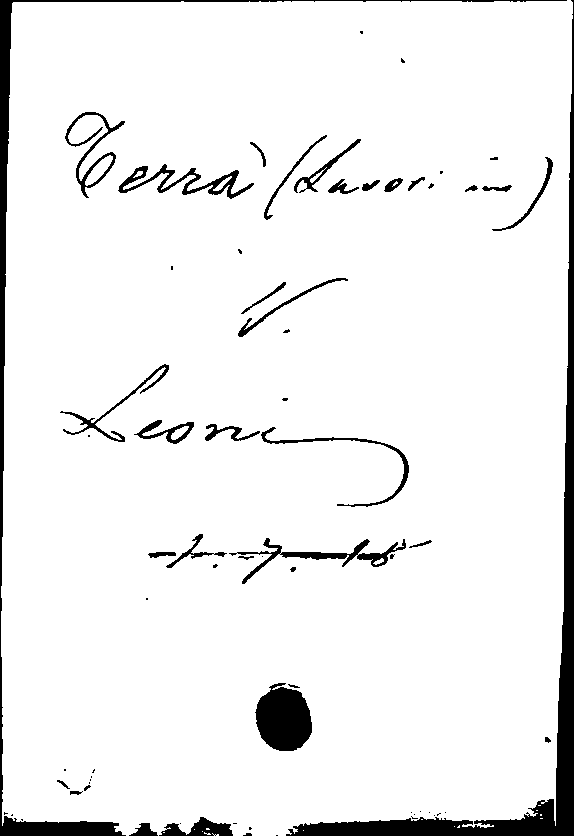 Terrà (Lavori in)
V.
Leoni
1.7.18